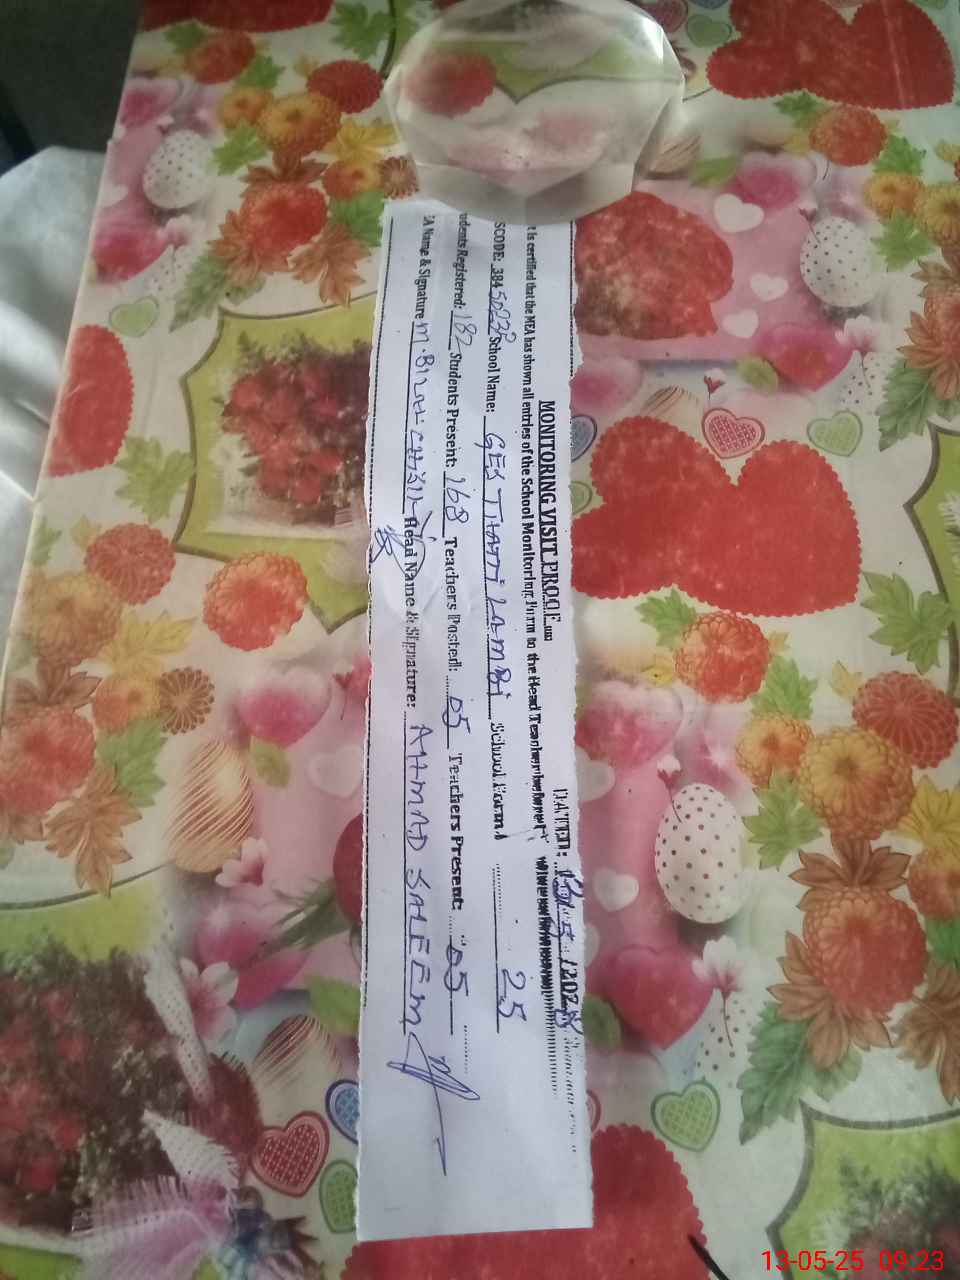 MONITORING VISIT PROOF
DATED: 13/5/2025
t is certified that the MEA has shown all entries of the School Monitoring Form to the Head Teacher before
SCODE: 38450238 School Name: GES THATTI LAMBI School Form 25
udents Registered: 182 Students Present: 168 Teachers Posted: 05 Teachers Present: 05
EA Name & Signature M. Head Name & Signature: AHMAD SALEEM
13-05-25 09:23